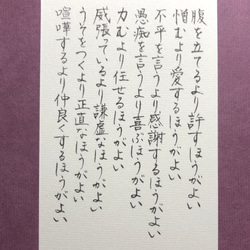 腹を立てるより許すほうがよい
憎むより愛するほうがよい
不平を言うより感謝するほうがよい
愚痴を言うより喜ぶほうがよい
力むより任せるほうがよい
威張っているより謙虚なほうがよい
うそをつくより正直なほうがよい
喧嘩するより仲良くするほうがよい